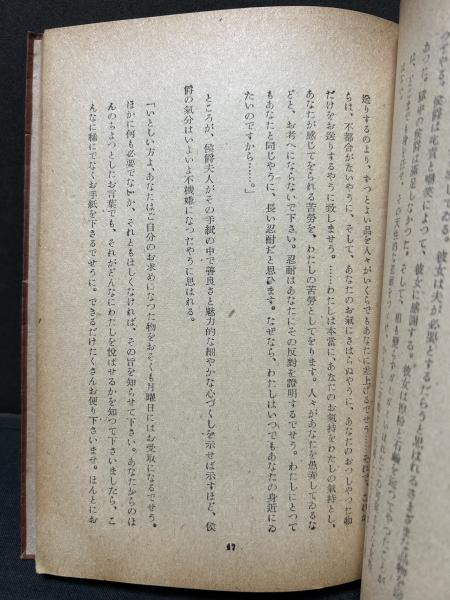 のでやる。侯爵は叱責と嘲笑によつて、彼女に感謝する。彼女は
あつた。獄中の侯爵は滿足しなかつた。そして、
送りするのより、ずつとよい品を人々がいくらでもあなたに差上げるでせう。それで、これか
らは、不都合がないやうに、そして、あなたのお氣にさはらぬやうに、あなたのおつしやつた物
だけをお送りするやうに致しませう。……わたしは本當に、あなたのお氣持をわたしの氣持とし、
あなたが感じてをられる苦勞を、わたしの苦勞としてをります。人々があなたを愚弄してゐるな
どと、お考へにならないで下さい。忍耐はあなたにその反對を證明するでせう。わたしにとつて
もあなたと同じやうに、長い忍耐だと思ひます。なぜなら、わたしはいつでもあなたの身近にゐ
たいのですから……。」
ところが、侯爵夫人がその手紙の中で善良さと魅力的な細やかな心づくしを示せば示すほど、侯
爵の氣分はいよいよ不機嫌になつたやうに思はれる。
「いとしい方よ、あなたはご自分のお求めになつた物をおそくも月曜日にはお受取になるでせう。
ほかに何も必要でないか、それともほしくなければ、その旨を知らせて下さい。あなたからのほ
んのちよつとしたお言葉でも、それがどんなにわたしを悅ばせるかを知つて下さいましたら、こ
んなに稀にでなくお手紙を下さるでせうに。できるだけたくさんお便り下さいませ。ほんとにお
47